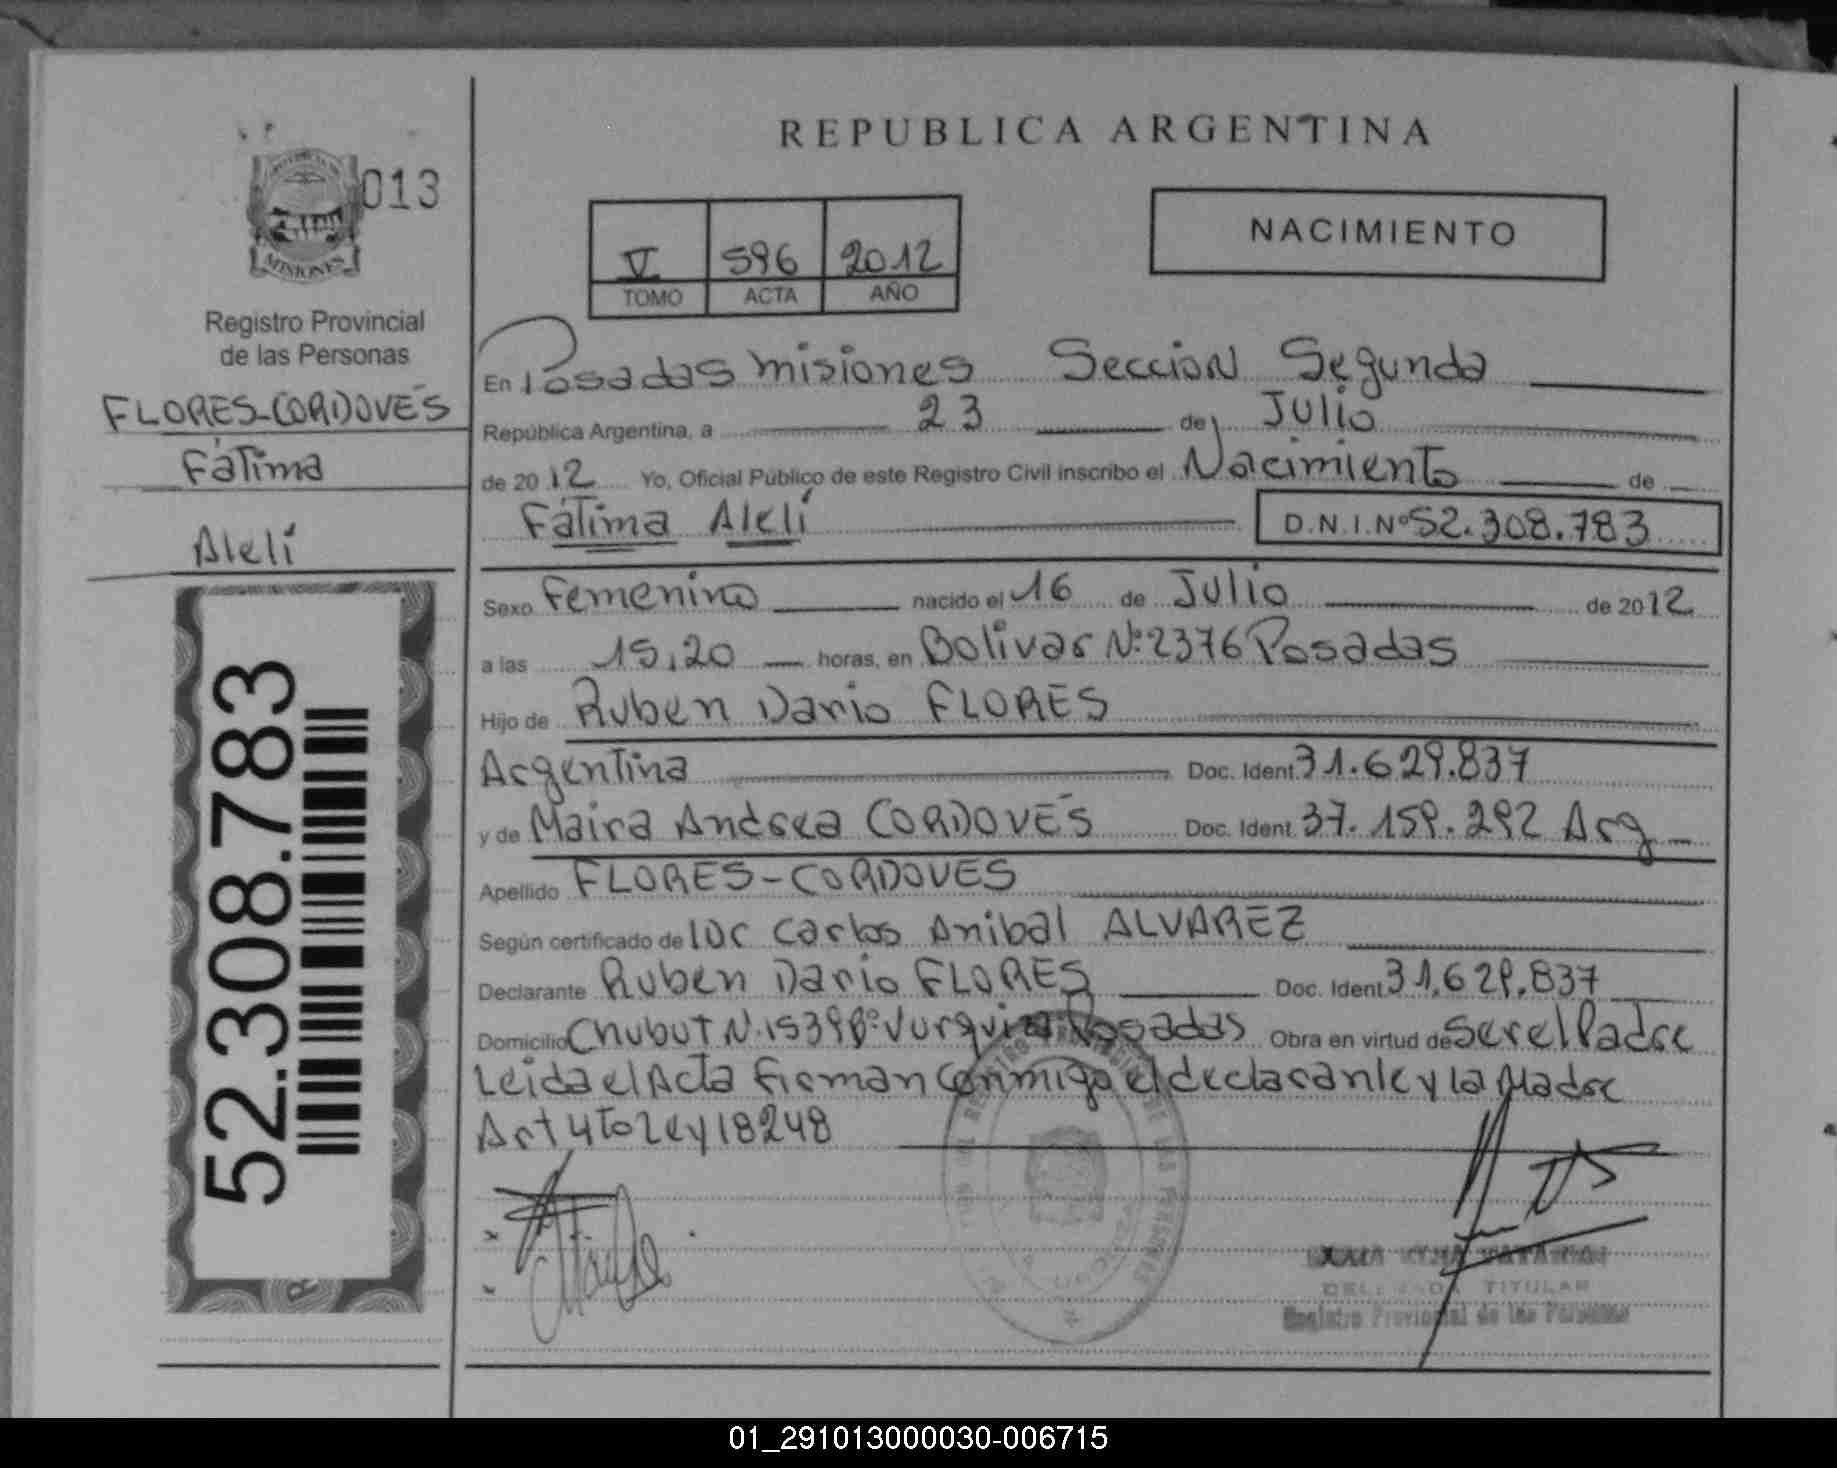 REPUBLICA ARGENTINA
013
MISIONES
Registro Provincial
de las Personas
FLORES-CORDOVÉS
Fátima
Alelí
52.308.783
V 596 2012
TOMO ACTA AÑO
NACIMIENTO
En Posadas misiones Seccion Segunda
República Argentina, a 23 de Julio
de 2012 Yo, Oficial Público de este Registro Civil inscribo el Nacimiento de
Fátima Alelí D.N.I.Nº 52.308.783
Sexo Femenino nacido el 16 de Julio de 2012
a las 15,20 horas, en Bolivar Nº 2376 Posadas
Hijo de Ruben Dario FLORES
Argentina Doc. Ident. 31.629.837
y de Maira Andrea CORDOVÉS Doc. Ident. 37.159.292 Arg
Apellido FLORES-CORDOVES
Según certificado de Carlos Anibal ALVAREZ
Declarante Ruben Dario FLORES Doc. Ident. 31.629.837
Domicilio Chubut N. Posadas Obra en virtud de Ser el Padre
Leida el Acta Firman Conmigo el declarante y la Madre
Art 4to Ley 18248
TITULAR
Registro Provincial de las Personas
01_291013000030-006715